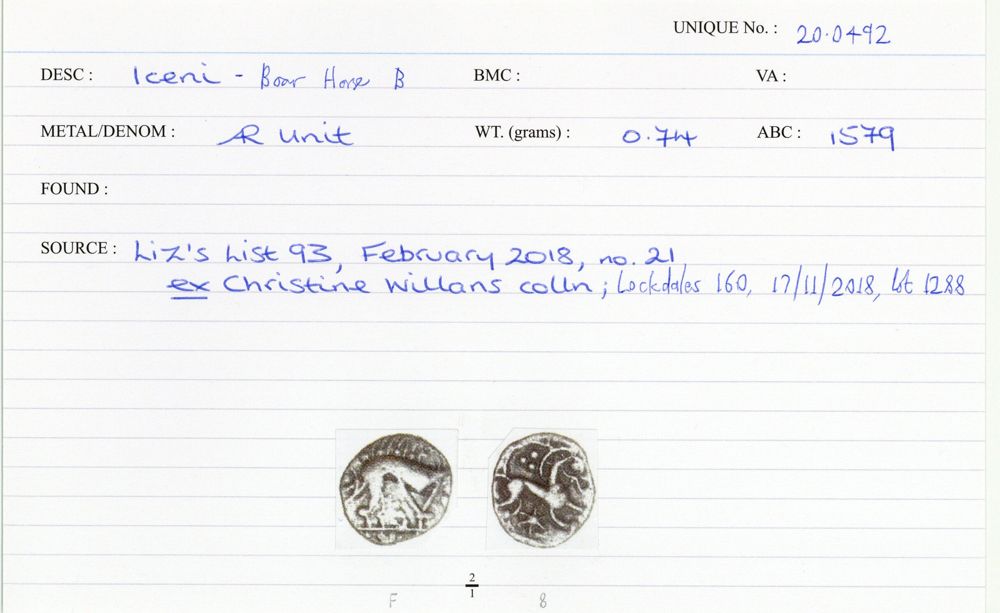 UNIQUE No. : 20.0492
DESC : Iceni - Boar Horse B BMC : VA :
METAL/DENOM : AR Unit WT. (grams) : 0.74 ABC : 1579
FOUND :
SOURCE : Liz's List 93, February 2018, no. 21
ex Christine Willans colln; Lockdales 160, 17/11/2018, lot 1288
2
1
F 8